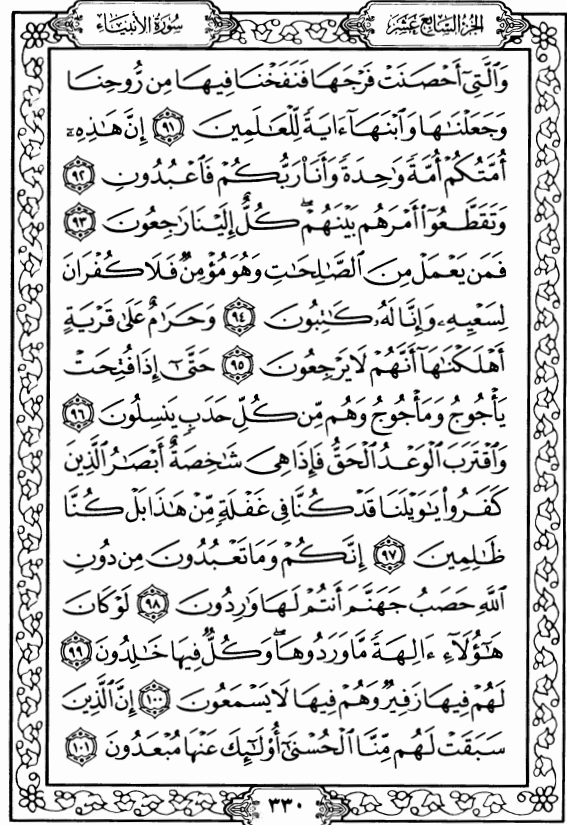 الجزء السابع عشر
سورة الأنبياء
وَٱلَّتِيٓ أَحْصَنَتْ فَرْجَهَا فَنَفَخْنَا فِيهَا مِن رُّوحِنَا
وَجَعَلْنَٰهَا وَٱبْنَهَآ ءَايَةً لِّلْعَٰلَمِينَ ٩١ إِنَّ هَٰذِهِۦٓ
أُمَّتُكُمْ أُمَّةً وَٰحِدَةً وَأَنَا۠ رَبُّكُمْ فَٱعْبُدُونِ ٩٢
وَتَقَطَّعُوٓا۟ أَمْرَهُم بَيْنَهُمْ ۖ كُلٌّ إِلَيْنَا رَٰجِعُونَ ٩٣
فَمَن يَعْمَلْ مِنَ ٱلصَّٰلِحَٰتِ وَهُوَ مُؤْمِنٌ فَلَا كُفْرَانَ
لِسَعْيِهِۦ وَإِنَّا لَهُۥ كَٰتِبُونَ ٩٤ وَحَرَٰمٌ عَلَىٰ قَرْيَةٍ
أَهْلَكْنَٰهَآ أَنَّهُمْ لَا يَرْجِعُونَ ٩٥ حَتَّىٰٓ إِذَا فُتِحَتْ
يَأْجُوجُ وَمَأْجُوجُ وَهُم مِّن كُلِّ حَدَبٍ يَنسِلُونَ ٩٦
وَٱقْتَرَبَ ٱلْوَعْدُ ٱلْحَقُّ فَإِذَا هِيَ شَٰخِصَةٌ أَبْصَٰرُ ٱلَّذِينَ
كَفَرُوا۟ يَٰوَيْلَنَا قَدْ كُنَّا فِي غَفْلَةٍ مِّنْ هَٰذَا بَلْ كُنَّا
ظَٰلِمِينَ ٩٧ إِنَّكُمْ وَمَا تَعْبُدُونَ مِن دُونِ
ٱللَّهِ حَصَبُ جَهَنَّمَ أَنتُمْ لَهَا وَٰرِدُونَ ٩٨ لَوْ كَانَ
هَٰٓؤُلَآءِ ءَالِهَةً مَّا وَرَدُوهَا ۖ وَكُلٌّ فِيهَا خَٰلِدُونَ ٩٩
لَهُمْ فِيهَا زَفِيرٌ وَهُمْ فِيهَا لَا يَسْمَعُونَ ١٠٠ إِنَّ ٱلَّذِينَ
سَبَقَتْ لَهُم مِّنَّا ٱلْحُسْنَىٰٓ أُو۟لَٰٓئِكَ عَنْهَا مُبْعَدُونَ ١٠١
٣٣٠